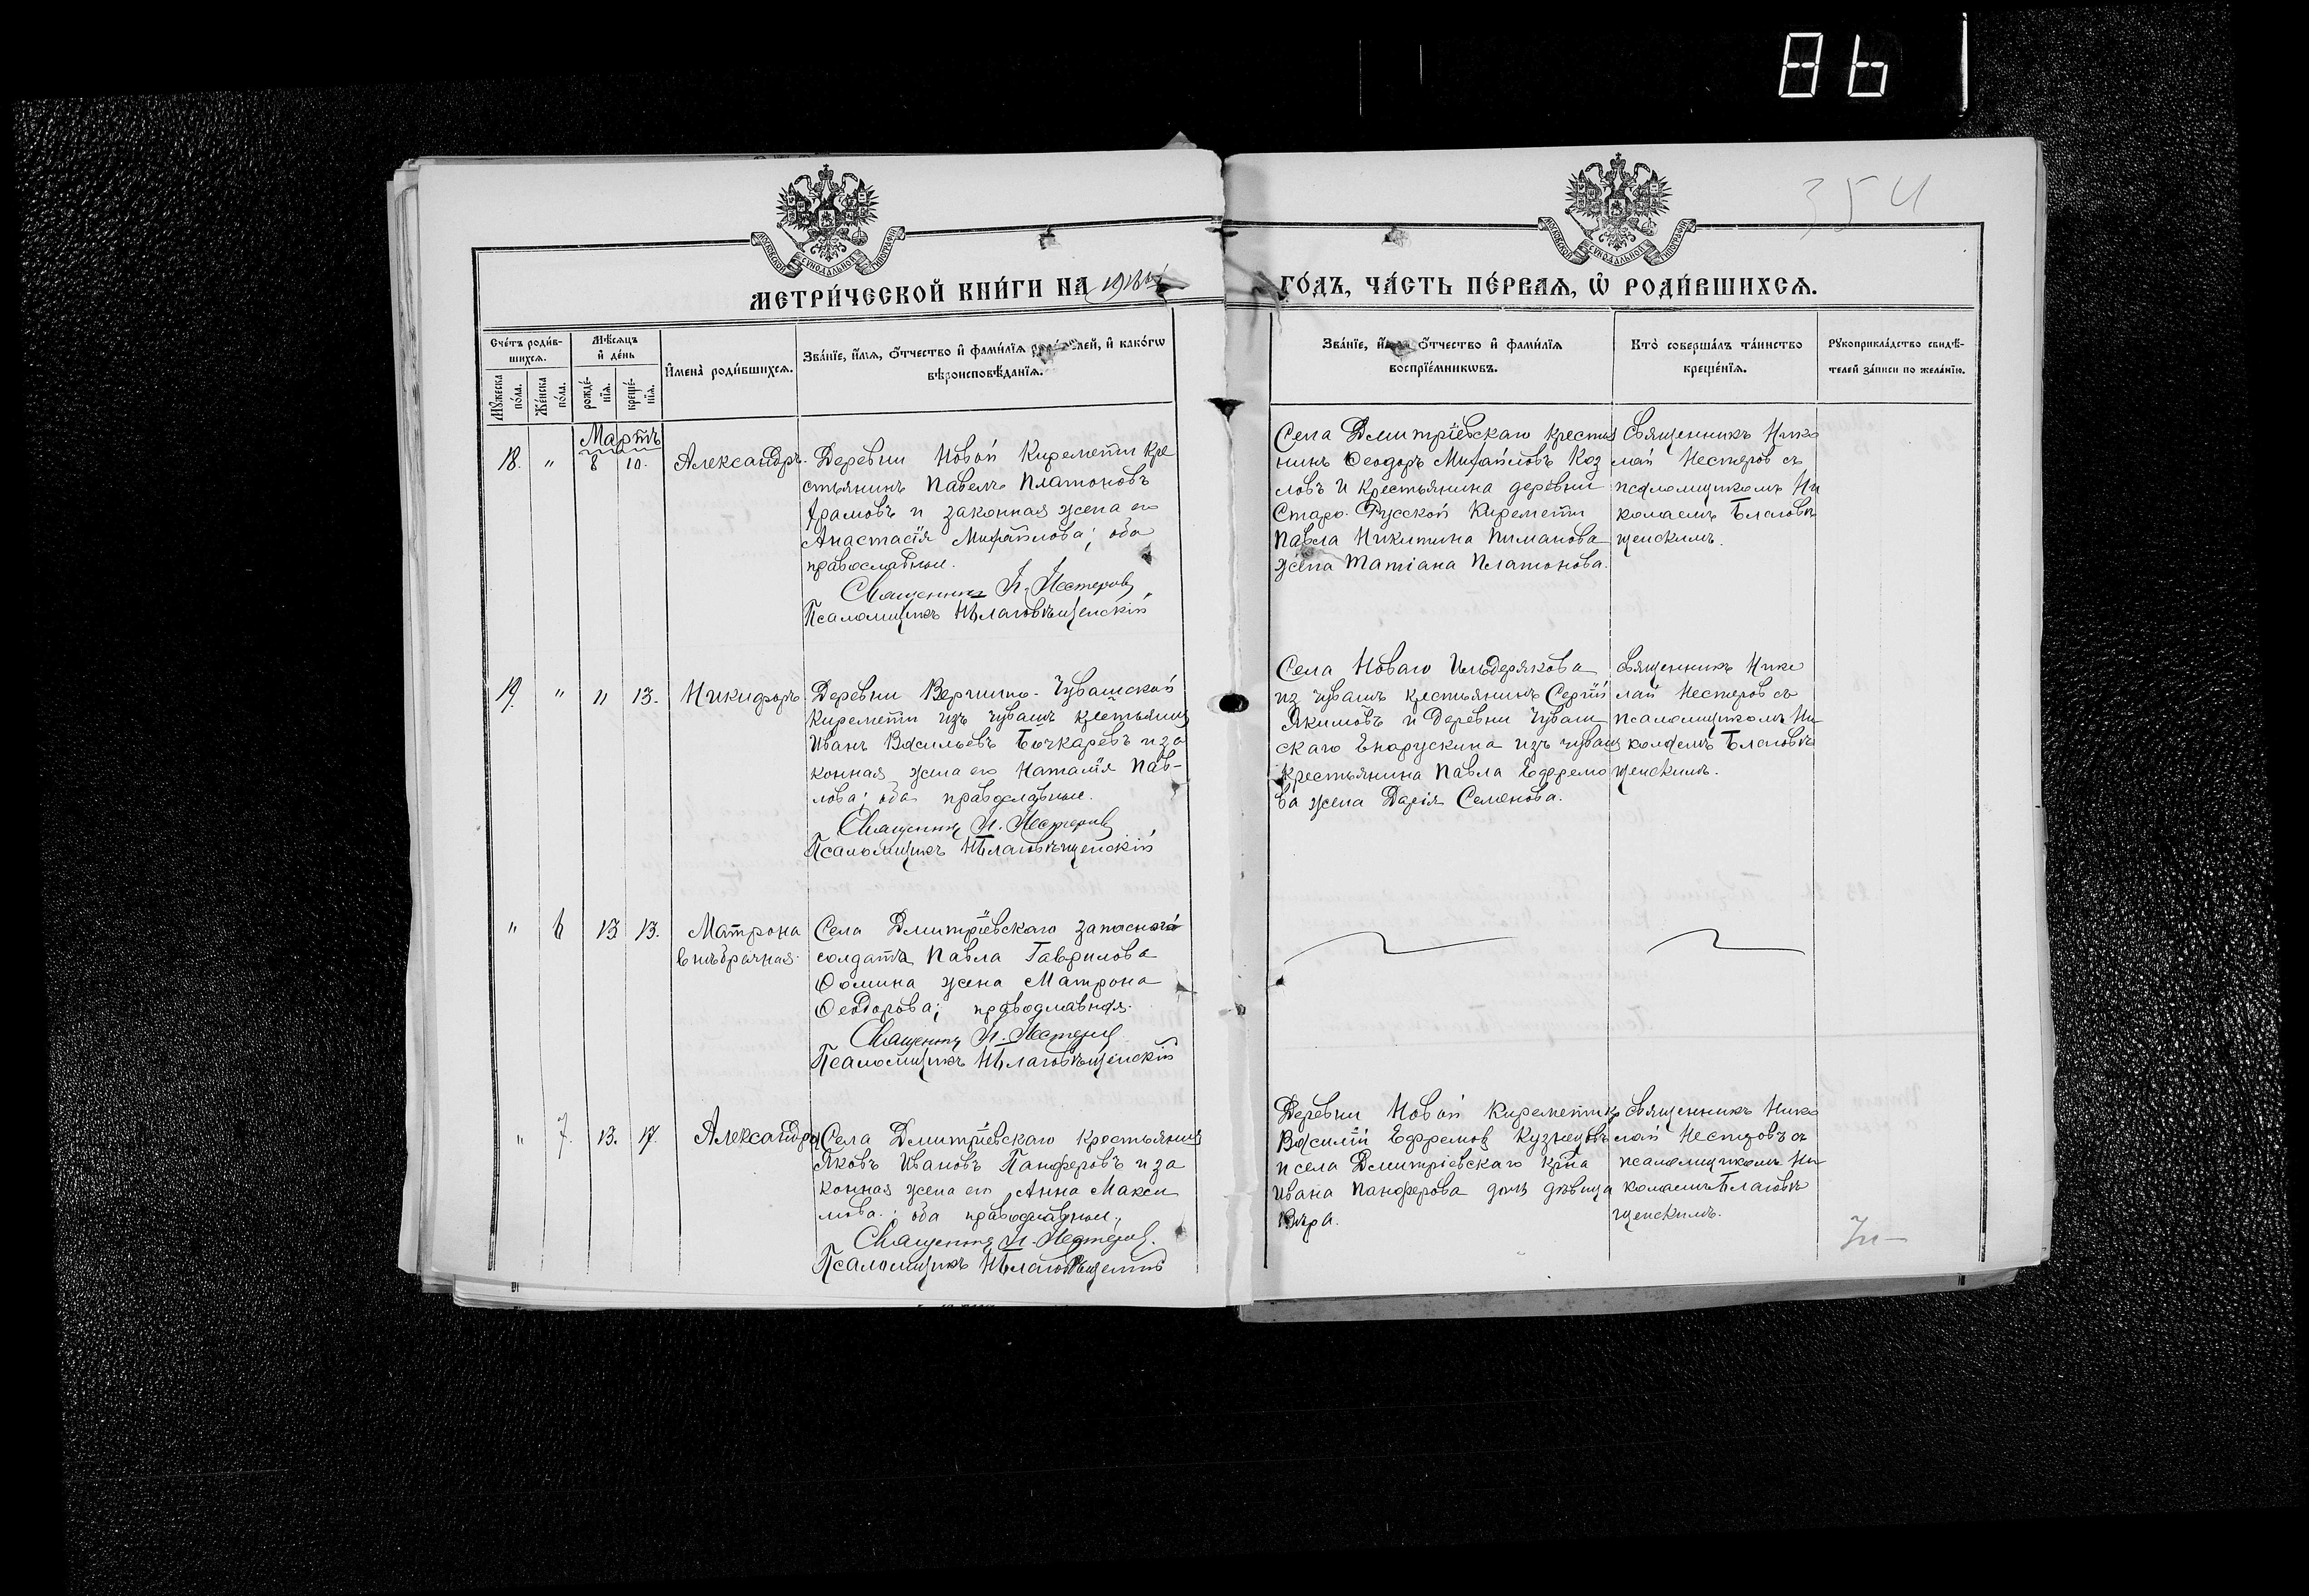 86
354
МОСКОВСКОЙ СУНОДАЛЬНОЙ ТИПОГРАФІИ
МОСКОВСКОЙ СУНОДАЛЬНОЙ ТИПОГРАФІИ
МЕТРИ́ЧЕСКОЙ КНИ́ГИ НА
ГО́ДЪ, ЧА́СТЬ ПЕ́РВАЯ, Ѡ҆ РОДИ́ВШИХСЯ.
Сче́тъ роди́в-
шихся.
Мꙋ́жеска
по́ла.
Же́нска
по́ла.
Мѣ́сяцъ
и҆ де́нь
рожде́-
нїя.
креще́-
нїя.
И҆мена̀ роди́вшихся.
Зва́нїе, и҆́мя, ѻ҆́тчество и҆ фами́лїя роди́телей, и҆ како́гѡ
вѣроисповѣ́данїя.
Зва́нїе, и҆́мя, ѻ҆́тчество и҆ фами́лїя
воспрїе́мникѡвъ.
Кто̀ соверша́лъ та́инство
креще́нїя.
Рꙋкоприкла́дство свидѣ́-
телей за́писи по жела́нїю.
Мартъ
18. " 8 10. Александръ.
Деревни Новой Киремети кре
стьянинъ Павелъ Платоновъ
Арамовъ и законная жена его
Анастасія Михайлова; оба
православные.
Священникъ Н. Нестеровъ
Псаломщикъ Н Благовѣщенскій
Села Дмитріевскаго крестья
нинъ Ѳеодоръ Михайловъ Коз
ловъ и крестьянина деревни
Старо-Русской Киремети
Павла Никитина Пиманова
жена Татіана Платонова.
Священникъ Нико
лай Нестеровъ съ
псаломщикомъ Ни
колаемъ Благовѣ
щенскимъ.
19. " 11 13. Никифоръ.
Деревни Вершино-Чувашской
Киремети изъ чувашъ крестьянинъ
Иванъ Васильевъ Бочкаревъ и за
конная жена его Наталія Пав-
лова; оба православные.
Священникъ Н. Нестеровъ
Псаломщикъ Н Благовѣщенскій
Села Новаго Ильдерякова
из чувашъ крестьянинъ Сергій
Якимовъ и деревни Чуваш
скаго Енорускина изъ чувашъ
крестьянина Павла Ефремо
ва жена Дарія Семенова.
Священникъ Нико
лай Нестеровъ съ
псаломщикомъ Ни-
колаемъ Благовѣ
щенскимъ.
" 6 13 13. Матрона
внѣбрачная.
Села Дмитріевскаго запаснаго
солдата Павла Гаврилова
Ѳомина жена Матрона
Ѳеодорова; православная.
Священникъ Н. Нестеровъ
Псаломщикъ Н Благовѣщенскій
" 7. 13. 17. Александра
Села Дмитріевскаго крестьянинъ
Яковъ Ивановъ Панферовъ и за
конная жена его Анна Макси
мова.; оба православные.
Священникъ Н. Нестеровъ.
Псаломщикъ Н Благовѣщенскій
Деревни Новой Киремети
Василій Ефремовъ Кузнецовъ
и села Дмитріевскаго кр-на
Ивана Панферова дочь дѣвица
Вѣра.
Священникъ Нико
лай Нестеровъ съ
псаломщикомъ Ни-
колаемъ Благовѣ
щенскимъ.